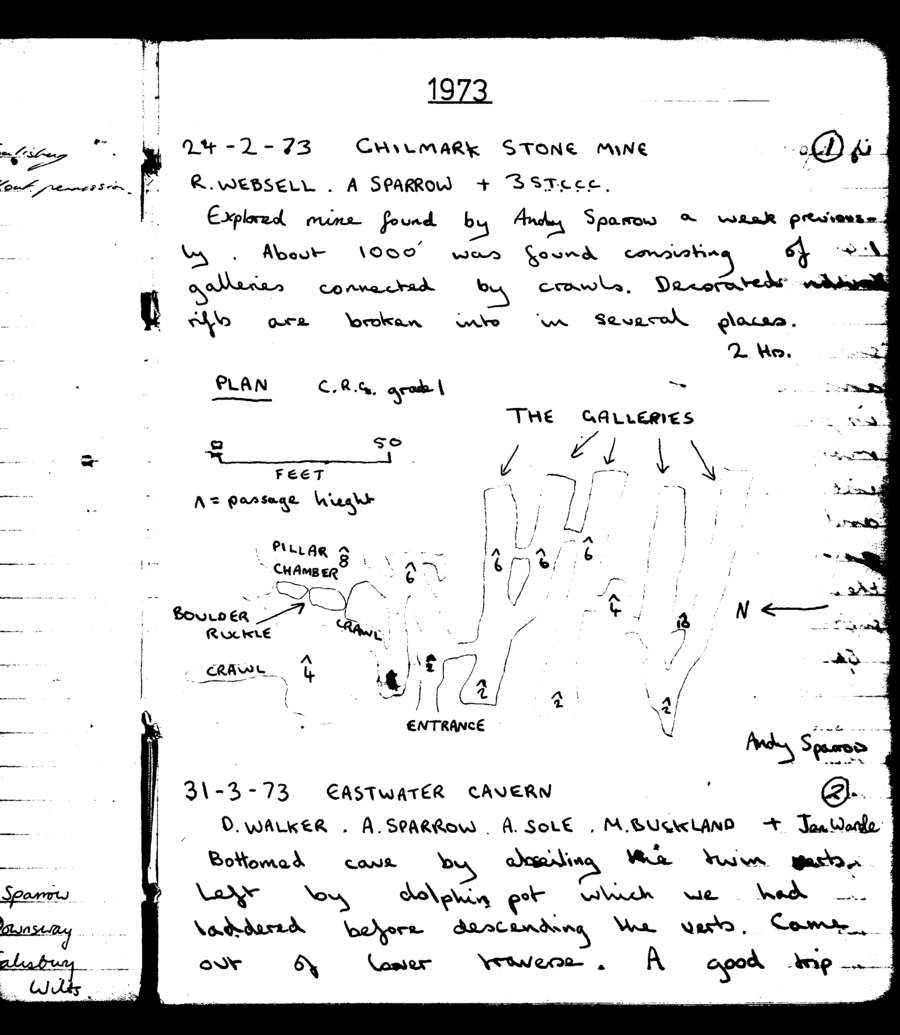 1973
24-2-73 CHILMARK STONE MINE 1
R. WEBSELL . A SPARROW + 3 S.T.C.C.C.
Explored mine found by Andy Sparrow a week previous-
ly . About 1000' was found consisting of
galleries connected by crawls. Decorated
rifts are broken into in several places.
2 Hrs.
PLAN C.R.G. grade 1
THE GALLERIES
0 50
FEET
^ = passage hieght
PILLAR 8
CHAMBER
6
6
6
6
BOULDER
RUCKLE
CRAWL
4
N
CRAWL
4
2
2
2
2
ENTRANCE
Andy Sparrow
31-3-73 EASTWATER CAVERN 2
D. WALKER . A. SPARROW . A. SOLE . M. BUCKLAND + Jan Warde
Bottomed cave by abseiling the twin verts.
Left by dolphin pot which we had
laddered before descending the verts. Came
out of lower traverse. A good trip
permission.
Sparrow
Downsway
Salisbury
Wilts.